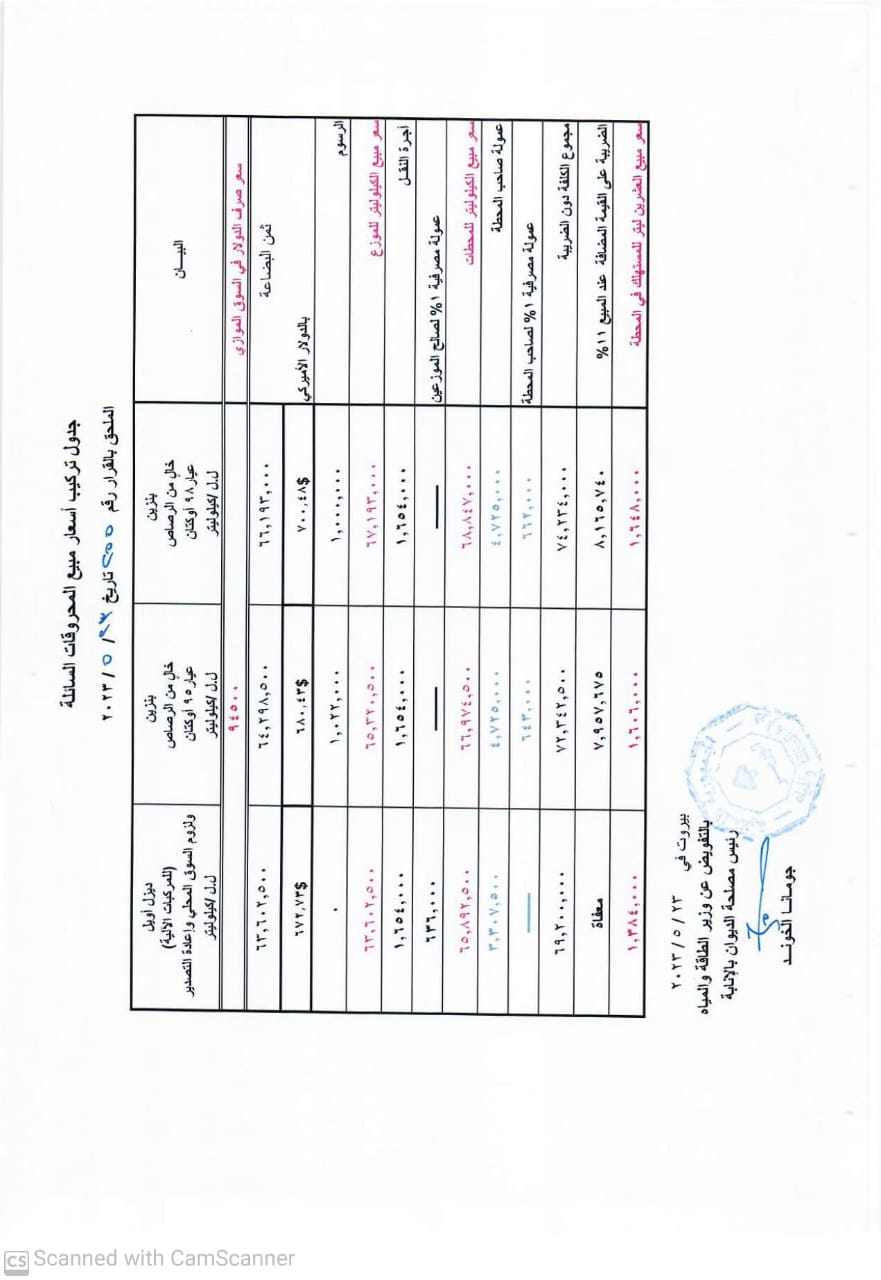 جدول تركيب أسعار مبيع المحروقات السائلة
الملحق بالقرار رقم ٢٥٥ تاريخ ٢٣ / ٥ / ٢٠٢٣
البيـــان
بنزين
خالٍ من الرصاص
عيار ٩٨ أوكتان
ل.ل/كيلوليتر
بنزين
خالٍ من الرصاص
عيار ٩٥ أوكتان
ل.ل/كيلوليتر
ديزل أويل
(للمركبات الآلية)
ولزوم السوق المحلي وإعادة التصدير
ل.ل/كيلوليتر
سعر صرف الدولار في السوق الموازي
٩٤٥٠٠
ثمن البضاعة
٦٦,١٩٣,٠٠٠
٦٤,٢٩٨,٥٠٠
٦٣,٦٠٢,٥٠٠
بالدولار الأميركي
٧٠٠,٤٨$
٦٨٠,٤٣$
٦٧٢,٧٣$
الرسوم
١,٠٠٠,٠٠٠
١,٠٢٢,٠٠٠
٠
سعر مبيع الكيلوليتر للموزع
٦٧,١٩٣,٠٠٠
٦٥,٣٢٠,٥٠٠
٦٣,٦٠٢,٥٠٠
أجرة النقل
١,٦٥٤,٠٠٠
١,٦٥٤,٠٠٠
١,٦٥٤,٠٠٠
عمولة مصرفية ١% لصالح الموزعين
—
—
٦٣٦,٠٠٠
سعر مبيع الكيلوليتر للمحطات
٦٨,٨٤٧,٠٠٠
٦٦,٩٧٤,٥٠٠
٦٥,٨٩٢,٥٠٠
عمولة صاحب المحطة
٤,٧٢٥,٠٠٠
٤,٧٢٥,٠٠٠
٣,٣٠٧,٥٠٠
عمولة مصرفية ١% لصاحب المحطة
٦٦٢,٠٠٠
٦٤٣,٠٠٠
—
مجموع الكلفة دون الضريبة
٧٤,٢٣٤,٠٠٠
٧٢,٣٤٢,٥٠٠
٦٩,٢٠٠,٠٠٠
الضريبة على القيمة المضافة عند المبيع ١١%
٨,١٦٥,٧٤٠
٧,٩٥٧,٦٧٥
معفاة
سعر مبيع العشرين ليتر للمستهلك في المحطة
١,٦٤٨,٠٠٠
١,٦٠٦,٠٠٠
١,٣٨٤,٠٠٠
بيروت في ٢٠٢٣ / ٥ / ٢٣
بالتفويض عن وزير الطاقة والمياه
رئيس مصلحة الديوان بالإنابة
جومانا الخونـد
CS Scanned with CamScanner